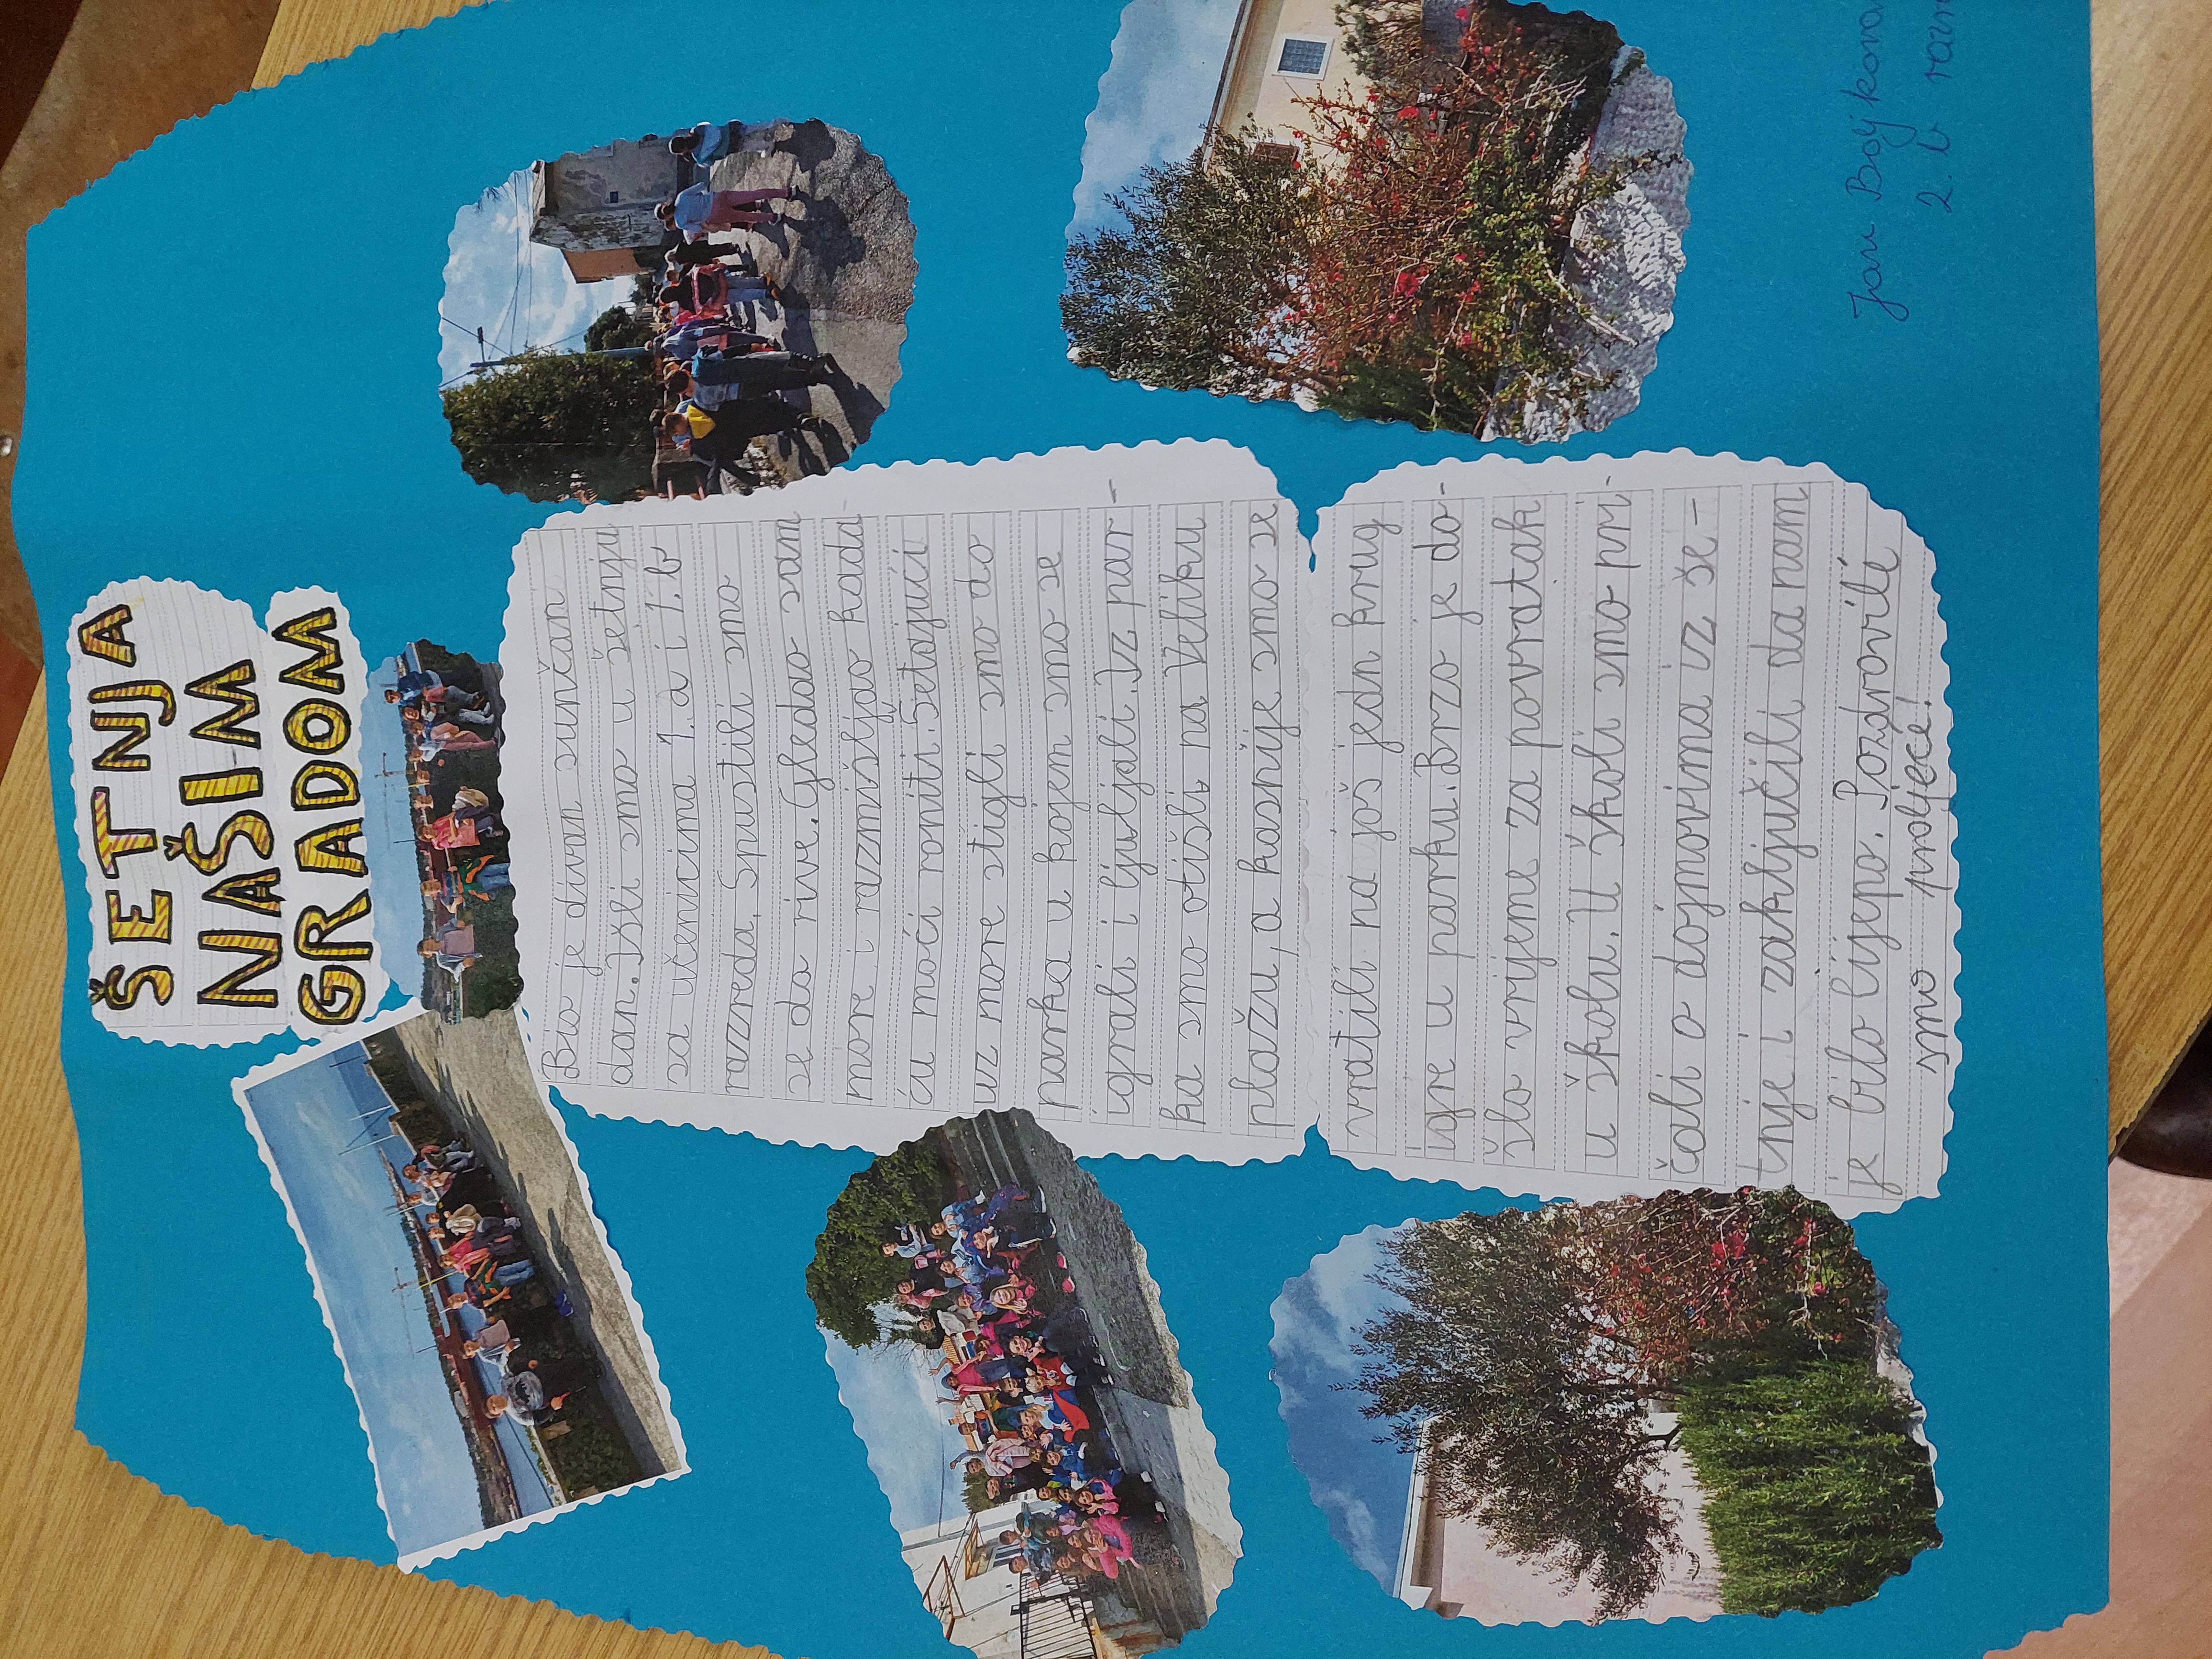 ŠETNJA
NAŠIM
GRADOM
Bio je divan sunčan
dan. Išli smo u šetnju
sa učenicima 1. a i 1. b
razreda. Spustili smo
se da rive. Gledao sam
more i razmišljao kada
ću moći roniti. Šetajući
uz more stigli smo do
parka u kojem smo se
igrali i ljuljali. Iz par-
ka smo otišli na Veliku
plažu, a kasnije smo se
vratili na još jedn krug
igre u parku. Brzo je do-
šlo vrijeme za povratak
u školu. U školi smo pri-
čali o dojmovima iz še-
tnje i zaključili da nam
je bilo lijepo. Pozdravili
smo proljeće!
Jan
2. b